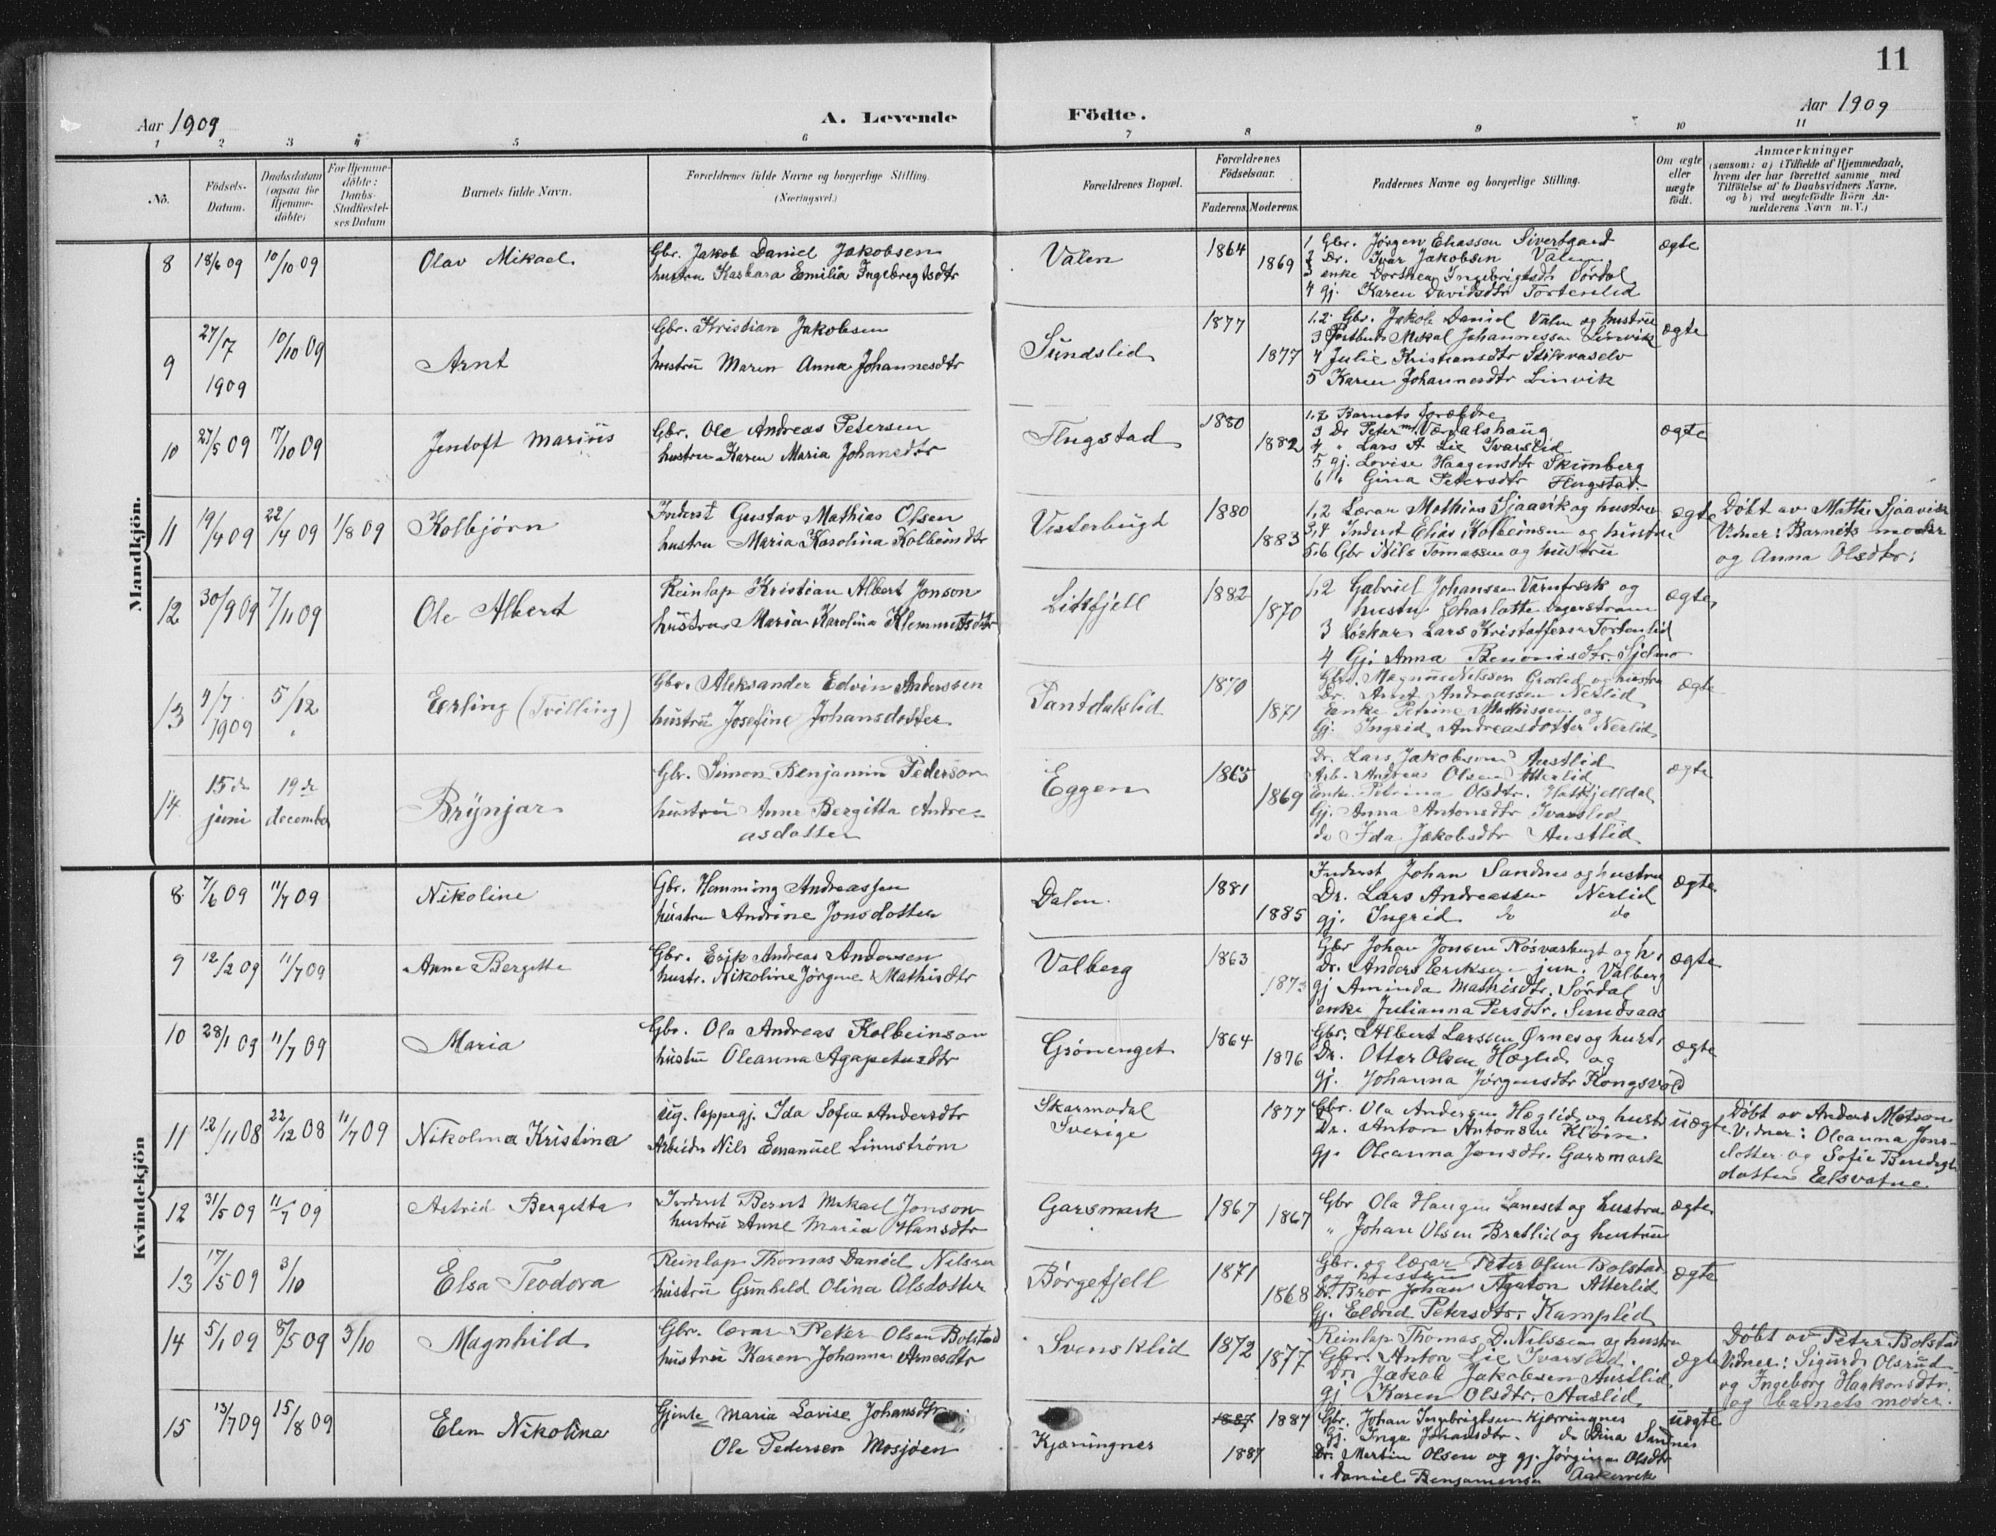 11
Aar 1909
A. Levende Födte.
Aar 1909
1 2 3 4 5 6 7 8 9 10 11
No.
Födsels-Datum.
Daabsdatum (ogsaa for Hjemme-döbte)
For Hjemme-döbte: Daabs-Stadfæstel-ses Datum
Barnets fulde Navn.
Forældrenes fulde Navne og borgerlige Stilling.
(Næringsvei.)
Forældrenes Bopæl.
Forældrenes Födselsaar.
Faderens. Moderens.
Faddernes Navne og borgerlige Stilling.
Om ægte eller uægte födt.
Anmærkninger
(saasom: a) i Tilfælde af Hjemmedaab, hvem der har forrettet samme, med Tilföielse af to Daabsvidners Navne, og b) ved uegtefödte Börn An-melderens Navn m. V.)
Mandkjön.
8 18/6 09 10/10 09 Olav Mikael
Gbr. Jakob Daniel Jakobsen
hustru Kasbara Emilia Ingebregtsdtr
Valen 1864 1869
1 Gbr. Jørgen Eliassen Sivertgaard
2 Dr. Ivar Jakobsen Valen
3 enke Dorthea Ingebrigtsdtr Sördal
4 gj. Karen Davidsdtr Tortenlid
ægte
9 27/7 1909 10/10 09 Arnt
Gbr. Kristian Jakobsen
hustru Maren Anna Johannesdtr
Sundslid 1877 1877
1,2 Gbr. Jakob Daniel Valen og hustru
3 Postbud Mikal Johannessen Linvik
4 Julie Kristiansdtr Stikvaselv
5 Karen Johannesdtr Linvik
ægte
10 27/5 09 17/10 09 Jentoft Marius
Gbr. Ole Andreas Petersen
hustru Karen Maria Johansdtr
Flugstad 1880 1882
1,2 Barnets forældre
3 Dr Peter M. Værdalshaug
4 " Lars A Lie Ivarslid
5 gj. Lovise Haagensdtr Skumberg
6 " Gina Petersdtr Flugstad.
ægte
11 19/4 09 22/4 09 1/8 09 Kolbjørn
Inderst Gustav Mathias Olsen
hustru Maria Karolina Kolbeinsdtr
Vesterbugt 1880 1883
1,2 Lærar Mathias Sjaavik og hustru
3,4 Inderst Elias Kolbeinsen og hustru
5,6 Gbr Nils Tomassen og hustru
ægte
Døbt av Mathi Sjaavik
Vidner: Barnets moder
og Anna Olsdtr:
12 30/9 09 7/11 09 Ole Albert
Reinlap Kristian Albert Jonson
hustru Maria Karolina Klemmetsdtr
Litlfjell 1882 1870
1,2 Gabriel Johansen Varntræsk og
hustru Charlotte Dagerstrøm
3 Løskar Lars Kristoffersen Tortenlid
4 Gj. Anna Benonisdtr.
ægte
13 4/7 1909 5/12 Erling (Tvilling)
Gbr. Aleksander Edvin Anderssen
hustru Josefine Johansdotter
Pantdalslid 1870 1871
Gbr. Magnus Nilssen Groslid og hustru
Dr. Arnt Andreassen Nerlid
Enke Petrine Mathissen og
Gj. Ingrid Andreasdotter Nerlid
ægte
14 15de juni 19de december Brynjar
Gbr. Simon Benjamin Pederson
hustru Anne Bergitta Andre-
asdotter
Eggen 1865 1869
Dr. Lars Jakobsen Austlid
Arb. Andreas Olsen Atterlid
Enke Petrina Olsdtr. Hatfjelldal
Gj. Anna Antonsdtr Ivarslid
do Ida Jakobsdtr Austlid
ægte
Kvindekjön
8 7/6 09 11/7 09 Nikoline
Gbr. Hemming Andreassen
hustru Andrine Jonsdotter
Dalen 1881 1885
Inderst Johan Sandnes og hustru
Dr. Lars Andreassen Nerlid
gj. Ingrid do do
ægte
9 12/2 09 11/7 09 Anne Bergitte
Gbr. Erik Andreas Andersen
hustr. Nikoline Jørgine Mathisdtr
Valberg 1863 1873
Gbr Johan Jonsen Røsvasbugt og h.
Dr. Anders Eriksen jun. Valberg
gj Aminda Mathisdtr. Sørdal
enke Julianna Persdtr. Sundsaas
ægte
10 28/1 09 11/7 09 Maria
Gbr. Ola Andreas Kolbeinson
hustru Oleanna Agapetusdtr
Grönenget 1864 1876
Gbr. Albert Larssen Ørnes og hust.
Dr. Otter Olsen Hæglid og
gj. Johanna Jørgensdtr Kongsvold
ægte
11 12/11 08 22/12 08 11/7 09 Nikolina Kristina
ug. lappegj. Ida Sofia Andersdtr
Arbeider Nils Emanuel Linnström
Skarmodal
Sverige
1877
Gbr. Ola Andersen Hæglid og hustr
Dr. Anton Antonsen Kløin
gj. Oleanna Jonsdtr. Garsmark
uægte
Døbt av Anders Matson
Vidner: Oleanna Jons-
dotter og Sofie Bendigt
dotter Elsvatne
12 31/5 09 11/7 09 Astrid Bergitta
Inderst Bernt Mikael Jonson
hustru Anne Maria Hansdtr
Garsmark 1867 1867
Gbr Ola Haugen Laneset og hustru
" Johan Olsen Bratlid og hustru
ægte
13 17/5 09 3/10 Elsa Teodora
Reinlap Thomas Daniel Nilsen
hustru Gunhild Olina Olsdotter
Börgefjell 1871 1868
Gbr. og lærar Peter Olsen Bolstad
og hustru
Dr. Bror Johan Agaton Atterlid
Gj. Eldrid Petersdtr. Kamplid
ægte
14 5/1 09 8/5 09 3/10 Magnhild
Gbr. lærar Peter Olsen Bolstad
hustru Karen Johanna Arnesdtr
Svensklid 1872 1877
Reinlap Thomas D. Nilssen og hustru
Gbr. Anton Lie Ivarslid.
Dr. Jakob Jakobsen Austlid
gj Karen Olsdtr. Aaslid
ægte
Døbt av Peter Bolstad
Vidner: Sigurd Olsrud
og Ingeborg Haakonsdtr.
og barnets moder.
15 13/7 09 15/8 09 Elen Nikolina
Gjente Maria Lovise Johansdtr
Ole Pedersen Mosjöen
Kjærringnes
1887 1887
1887
Gbr. Johan Ingebrigtsen Kjærringnes
Gj. Inga Johansdtr. do Dina Sandnes
Dr. Martin Olsen og gj. Jørgina Olsdtr
" Daniel Benjaminsen Aakervik
uægte